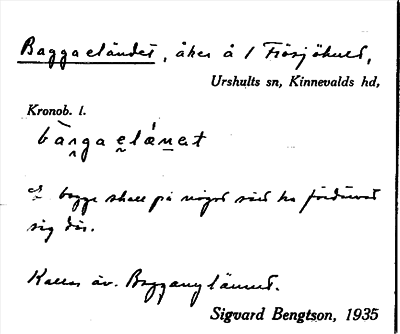 Baggaeländet, åker å 1 Frösjöhult,
Urshults sn, Kinnevalds hd,
Kronob. l.
bàŋga elän̄et
bagge skall på något sätt ha fördärvat
sig där.
Kallas äv. Baggauglännet.
Sigvard Bengtson, 1935